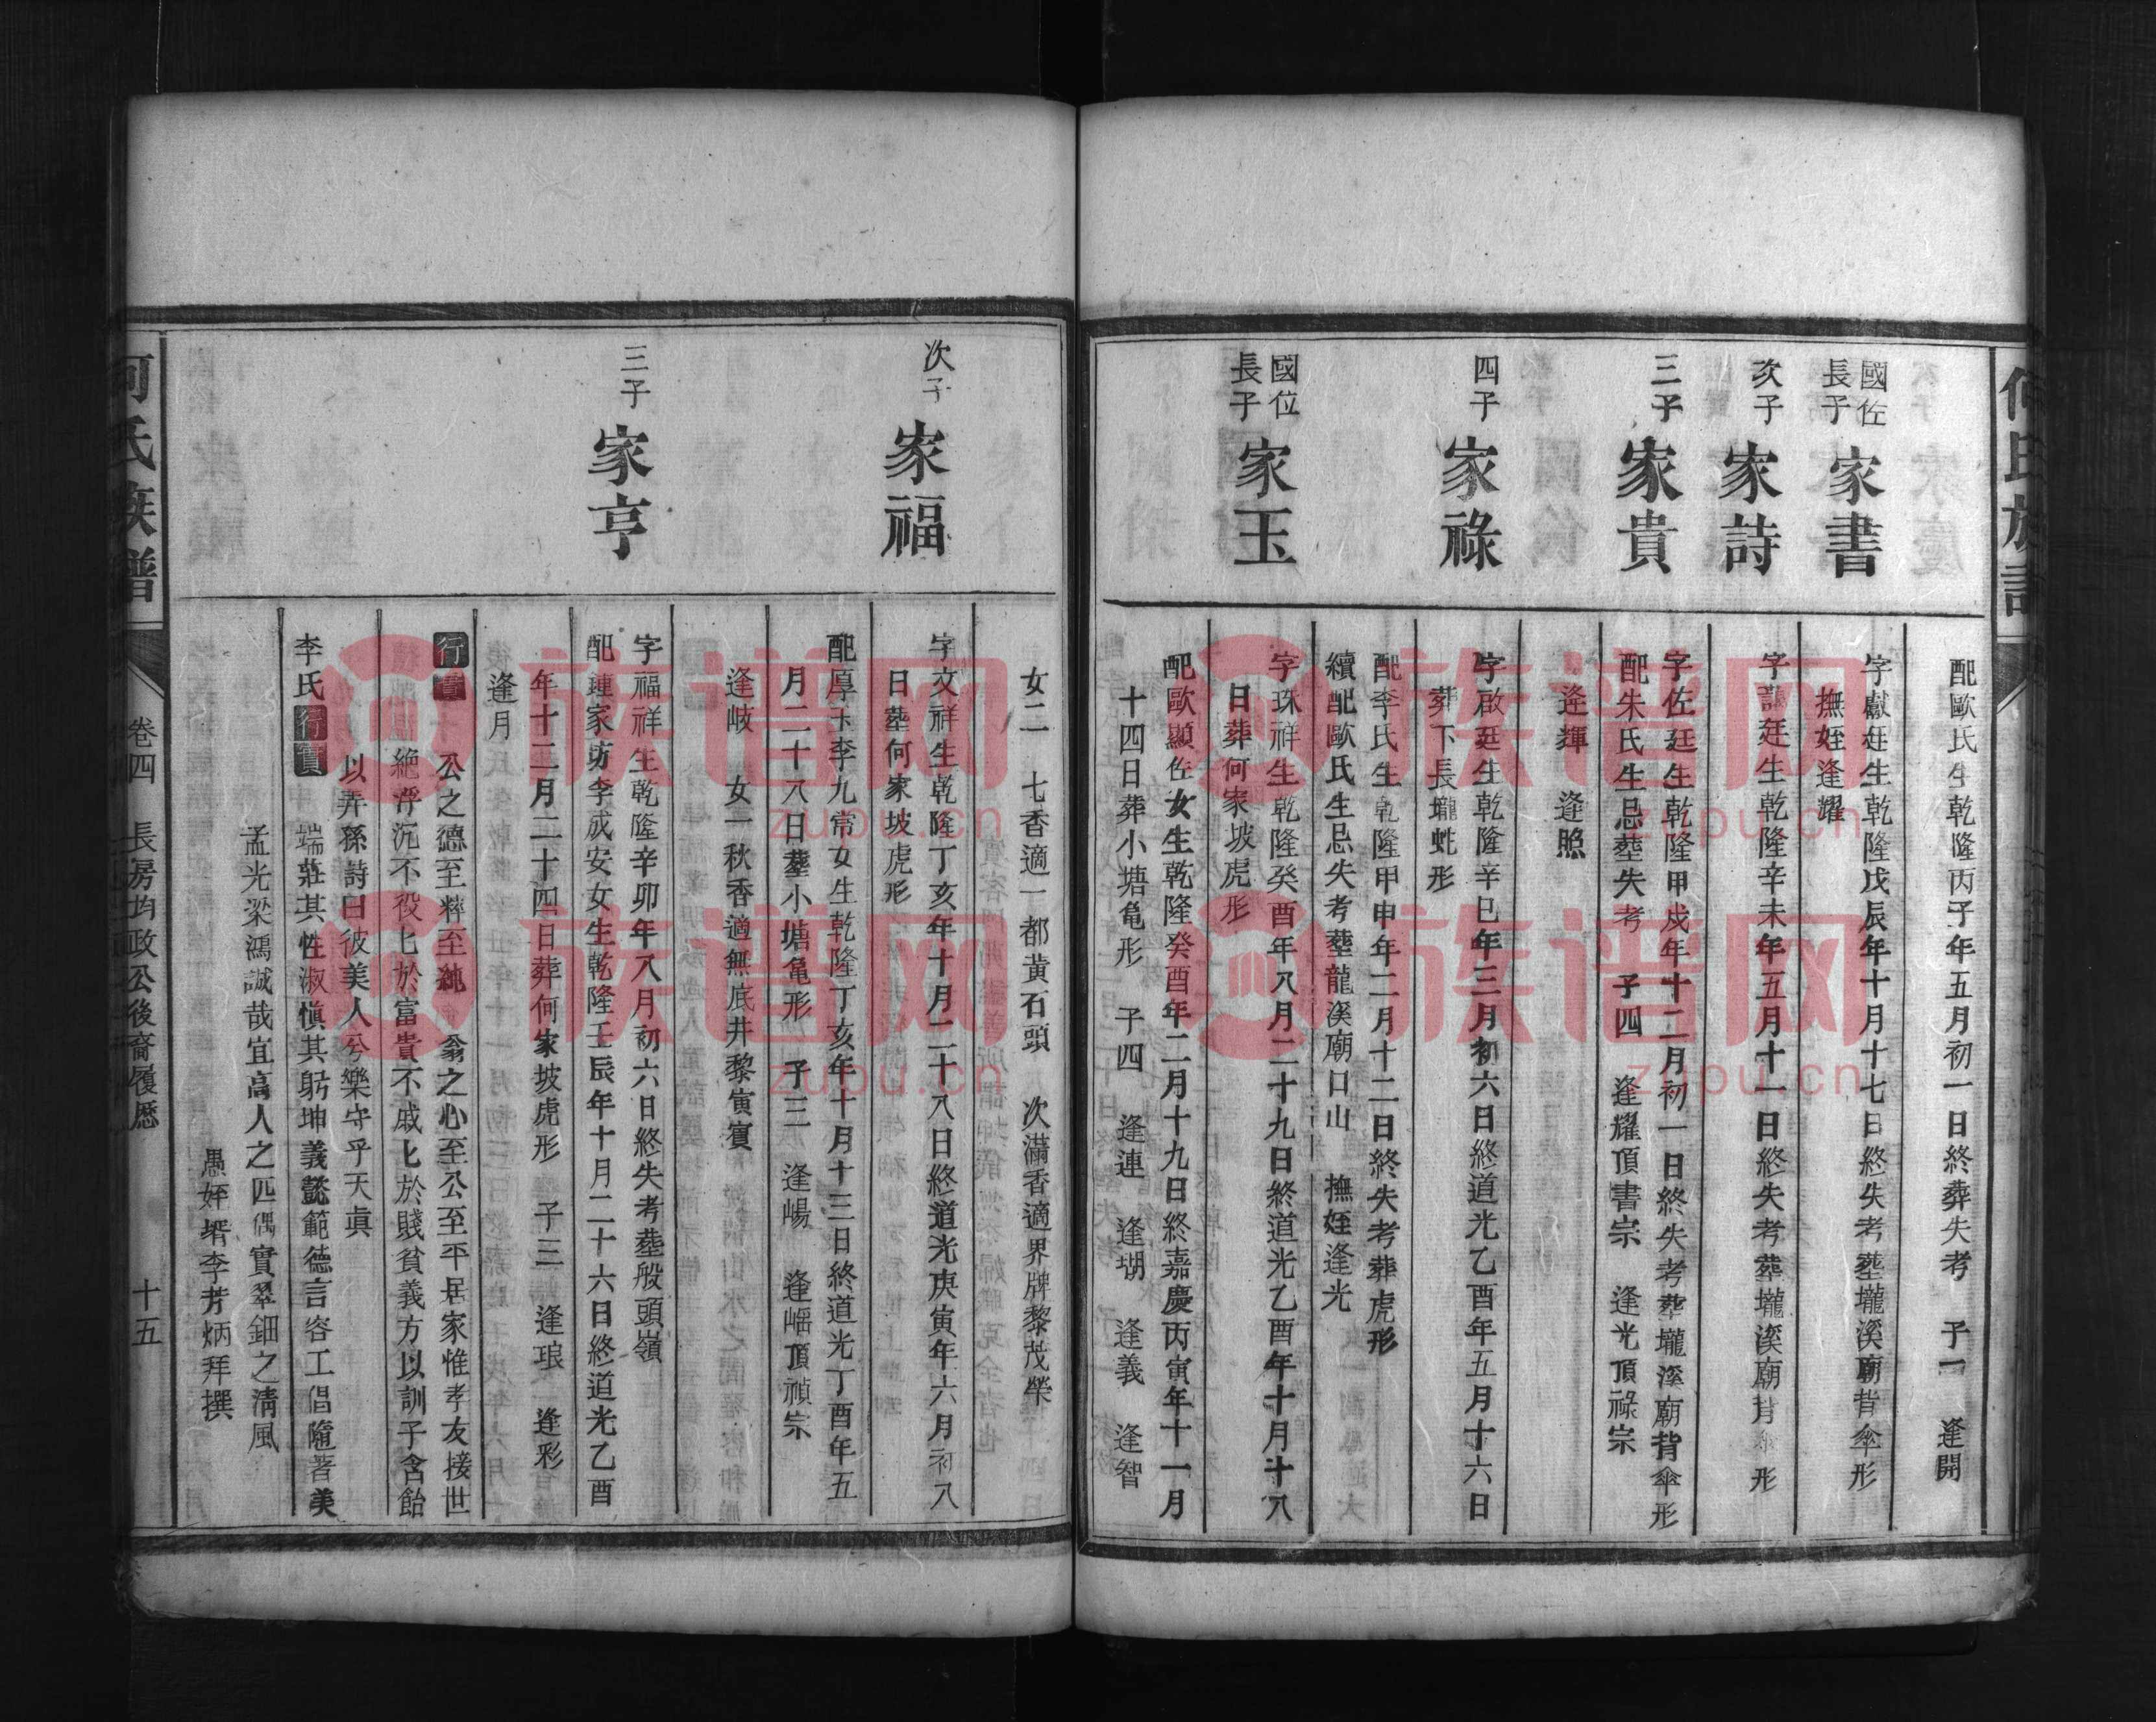 配歐氏生乾隆丙子年五月初一日終葬失考　子一　逢開
國佐
長子
家書
字獻廷生乾隆戊辰年十月十七日終失考塟壠溪廟背傘形
撫姪逢耀
次子
家詩
字謨廷生乾隆辛未年五月十一日終失考葬壠溪廟背傘形
三子
家貴
字佐廷生乾隆甲戌年十二月初一日終失考葬壠溪廟背傘形
配朱氏生忌塟失考　子四　逢耀頂書宗　逢光頂祿宗
逢輝　逢照
四子
家祿
字啟廷生乾隆辛巳年三月初六日終道光乙酉年五月十六日
葬下長壠虵形
配李氏生乾隆甲申年二月十二日終失考葬虎形
續配歐氏生忌失考塟龍溪廟口山　撫姪逢光
國位
長子
家玉
字珠祥生乾隆癸酉年八月二十九日終道光乙酉年十月廿八
日葬何家坡虎形
配歐顯佐女生乾隆癸酉年二月十九日終嘉慶丙寅年十一月
十四日葬小塘龜形　子四　逢連　逢瑚　逢義　逢智
女二　七香適一都黃石頭　次滿香適界牌黎茂榮
次子
家福
字文祥生乾隆丁亥年十月二十八日終道光庚寅年六月初八
日塟何家坡虎形
配厚玉李九常女生乾隆丁亥年十月十三日終道光丁酉年五
月二十八日塟小塘龜形　子三　逢崵　逢崛頂禎宗
逢岐　女一秋香適無底井黎寅賓
三子
家亨
字福祥生乾隆辛卯年八月初六日終失考塟般頭嶺
配璉家坊李成安女生乾隆壬辰年十月二十六日終道光乙酉
年十二月二十四日葬何家坡虎形　子三　逢琅　逢彩
逢月
行實　公之德至粹至純　翁之心至公至平居家惟孝友接世
絶浮沉不役匕於富貴不戚匕於賤貧義方以訓子含飴
以弄孫詩曰彼美人兮樂守乎天眞
李氏行實　端莊其性淑愼其躬坤義懿範德言容工倡隨著美
孟光梁鴻誠哉宜高人之匹偶實翠鈿之淸風
愚姪壻李芳炳拜撰
何氏族譜
卷四　長房均政公後裔履歷
十五